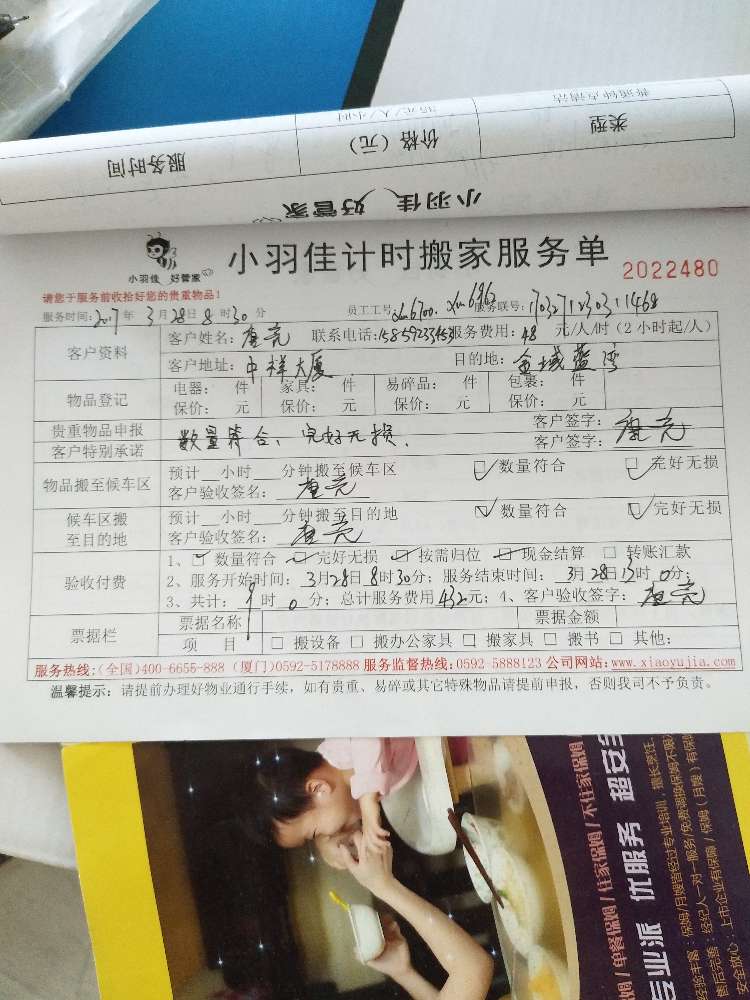 普通钟点清洁
35元/人/小时
类型
价格（元）
服务时间
小羽佳 好管家
小羽佳 好管家
小羽佳计时搬家服务单
2022480
请您于服务前收拾好您的贵重物品！
服务时间：2017年3月28日8时30分 员工工号： 服务联号：
客户资料
客户姓名： 联系电话： 服务费用：48元/人/时（2小时起/人）
客户地址：中祥大厦 目的地：金域蓝湾
物品登记
电器： 件 家具： 件 易碎品： 件 包裹： 件
保价： 元 保价： 元 保价： 元 保价： 元
贵重物品申报
客户特别承诺
数量符合、完好无损.
客户签字：
客户签字：
物品搬至候车区
预计__小时__分钟搬至候车区 ☑数量符合 ☑完好无损
客户验收签名：
候车区搬
至目的地
预计__小时__分钟搬至目的地 ☑数量符合 ☑完好无损
客户验收签名：
验收付费
1、☑数量符合 ☑完好无损 ☑按需归位 ☑现金结算 □转账汇款
2、服务开始时间：3月28日8时30分；服务结束时间：3月28日 时0分；
3、共计：9时0分；总计服务费用432元；4、客户验收签字：
票据栏
票据名称 票据金额
项 目 □搬设备 □搬办公家具 □搬家具 □搬书 □其他：
服务热线：(全国)400-6655-888 (厦门)0592-5178888 服务监督热线：0592-5888123 公司网站：www.xiaoyujia.com
温馨提示：请提前办理好物业通行手续，如有贵重、易碎或其它特殊物品请提前申报，否则我司不予负责。
/单餐保姆/住家保姆/不住家保姆
专业派 优服务 超安全
经验丰富：保姆/月嫂皆经过专业培训，擅长烹饪、
售后完善：经纪人一对一服务/免费调换保姆不限
安全放心：上市企业有保障/保姆(月嫂)有保